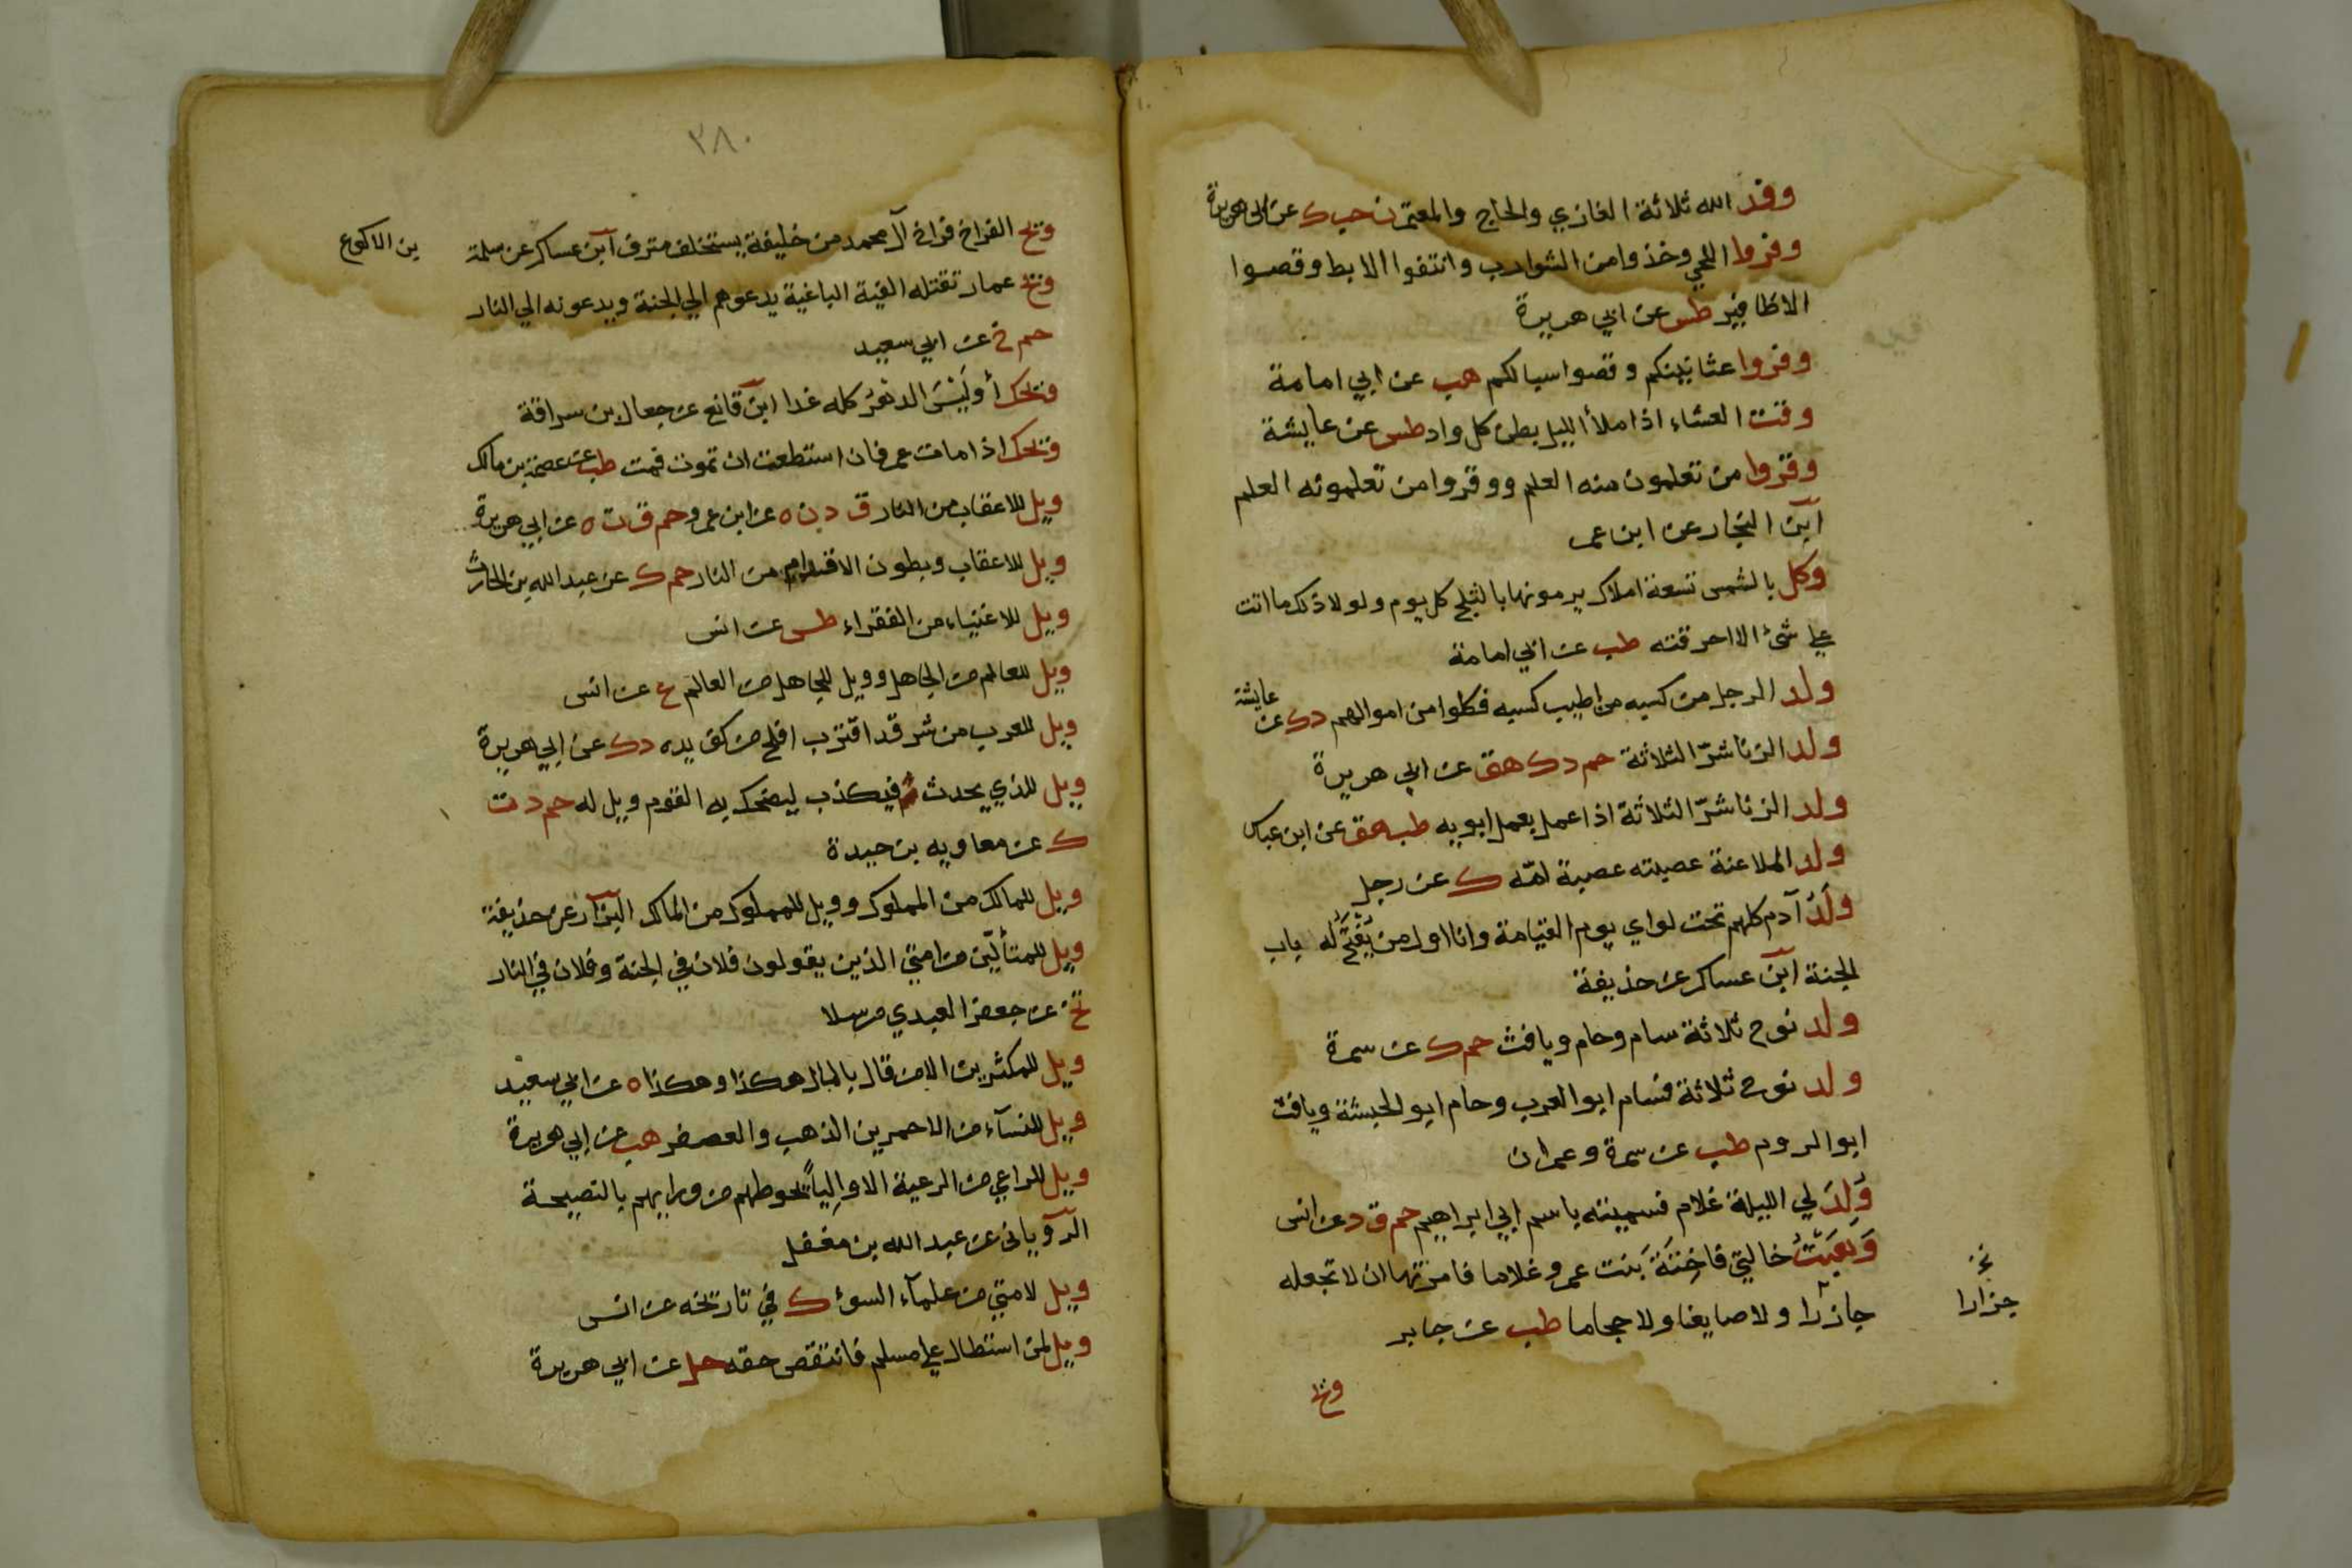 وفد الله ثلاثة الغازي والحاج والمعتمر ن حب ك عن ابي هريرة
وفروا اللحي وخذوا من الشوارب وانتفوا الابط وقصوا
الاظافير طس عن ابي هريرة
وفروا عثانينكم وقصوا سبالكم هب عن ابي امامة
وقت العشاء اذا ملأ الليل بطن كل واد طس عن عايشة
وقروا من تعلمون منه العلم ووقروا من تعلمونه العلم
ابن النجار عن ابن عمر
وكل بالشمس تسعة املاك يرمونها بالثلج كل يوم ولولا ذلك ما اتت
علي شئ الا احرقته طب عن ابي امامة
ولد الرجل من كسبه من اطيب كسبه فكلوا من اموالهم د ك عن عايشة
ولد الزنا شرّ الثلاثة حم د ك هق عن ابي هريرة
ولد الزنا شرّ الثلاثة اذا عمل بعمل ابويه طب هق عن ابن عباس
ولد الملاعنة عصبته عصبة امّه ك عن رجل
ولَدُ آدم كلهم تحت لواي يوم القيامة وانا اول من يُفْتَحُ له باب
الجنة ابن عساكر عن حذيفة
ولد نوح ثلاثة سام وحام ويافث حم ك عن سمرة
ولد نوح ثلاثة فسام ابو العرب وحام ابو الحبشة ويافث
ابو الروم طب عن سمرة وعمران
وُلِدَ لي الليلة غلام فسميته باسم ابي ابراهيم حم ق د عن انس
وَهَبْتُ خالتي فاخِتَةَ بَنت عمرو غلاما فامرتها ان لا تجعله
جازرا ولا صايغا ولا حجاما طب عن جابر
نخ
جزارا
ويح
٣٨٠
ويح الفراخ فراخ آل محمد من خليفة يستخلف مترف ابن عساكر عن سلمة
بن الاكوع
ويح عمار تقتله الفية الباغية يدعوهم الي الجنة ويدعونه الي النار
حم خ عن ابي سعيد
ويحك أوَلَيْسَ الدهرُ كله غدا ابن قانع عن جعال بن سراقة
ويحك اذا مات عمر فان استطعت ان تموت فمت طب عن عصمة بن مالك
ويل للاعقاب من النار ق د ن ه عن ابن عمرو حم ق ت ه عن ابي هريرة
ويل للاعقاب وبطون الاقدام من النار حم ك عن عبد الله بن الحارث
ويل للاغنياء من الفقراء طس عن انس
ويل للعالم من الجاهل وويل للجاهل من العالم ع عن انس
ويل للعرب من شر قد اقترب افلح من كف يده د ك عن ابي هريرة
ويل للذي يحدث فيكذب ليضحك به القوم ويل له حم د ت
ك عن معاويه بن حيدة
ويل للمالك من المملوك وويل للمملوك من المالك البزار عن حذيفة
ويل للمتألّين من امتي الذين يقولون فلان في الجنة وفلان في النار
تخ عن جعفر العبدي مرسلا
ويل للمكثرين الا من قال بالمال هكذا وهكذا ه عن ابي سعيد
ويل للنسآء من الاحمرين الذهب والعصفر هب عن ابي هريرة
ويل للراعي من الرعية الا والِياً يحوطهم من ورايهم بالنصيحة
الروياني عن عبد الله بن مغفل
ويل لامتي من علمآء السوء ك في تاريخه عن انس
ويل لمن استطال علي مسلم فانتقص حقه حل عن ابي هريرة